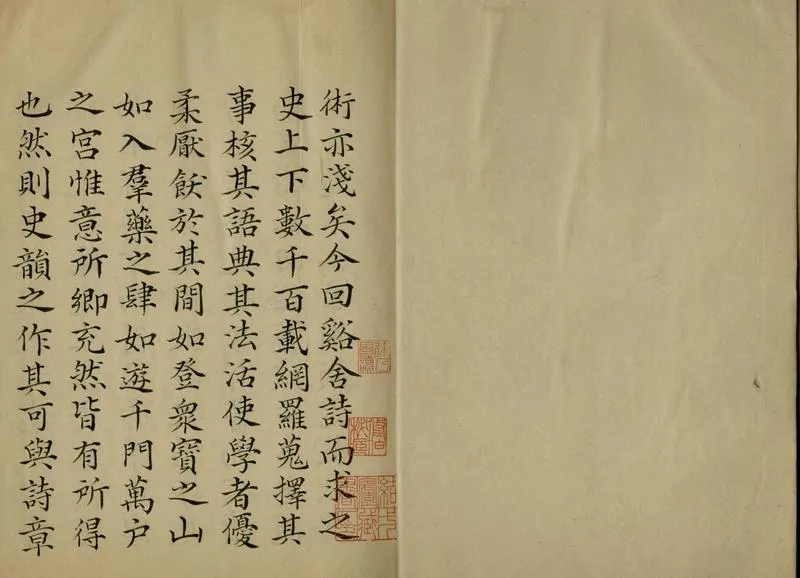 術亦淺矣今回谿舍詩而求之
史上下數千百載網羅蒐擇其
事核其語典其法活使學者優
柔厭飫於其間如登衆寶之山
如入羣藥之肆如遊千門萬户
之宮惟意所鄉充然皆有所得
也然則史韻之作其可與詩章